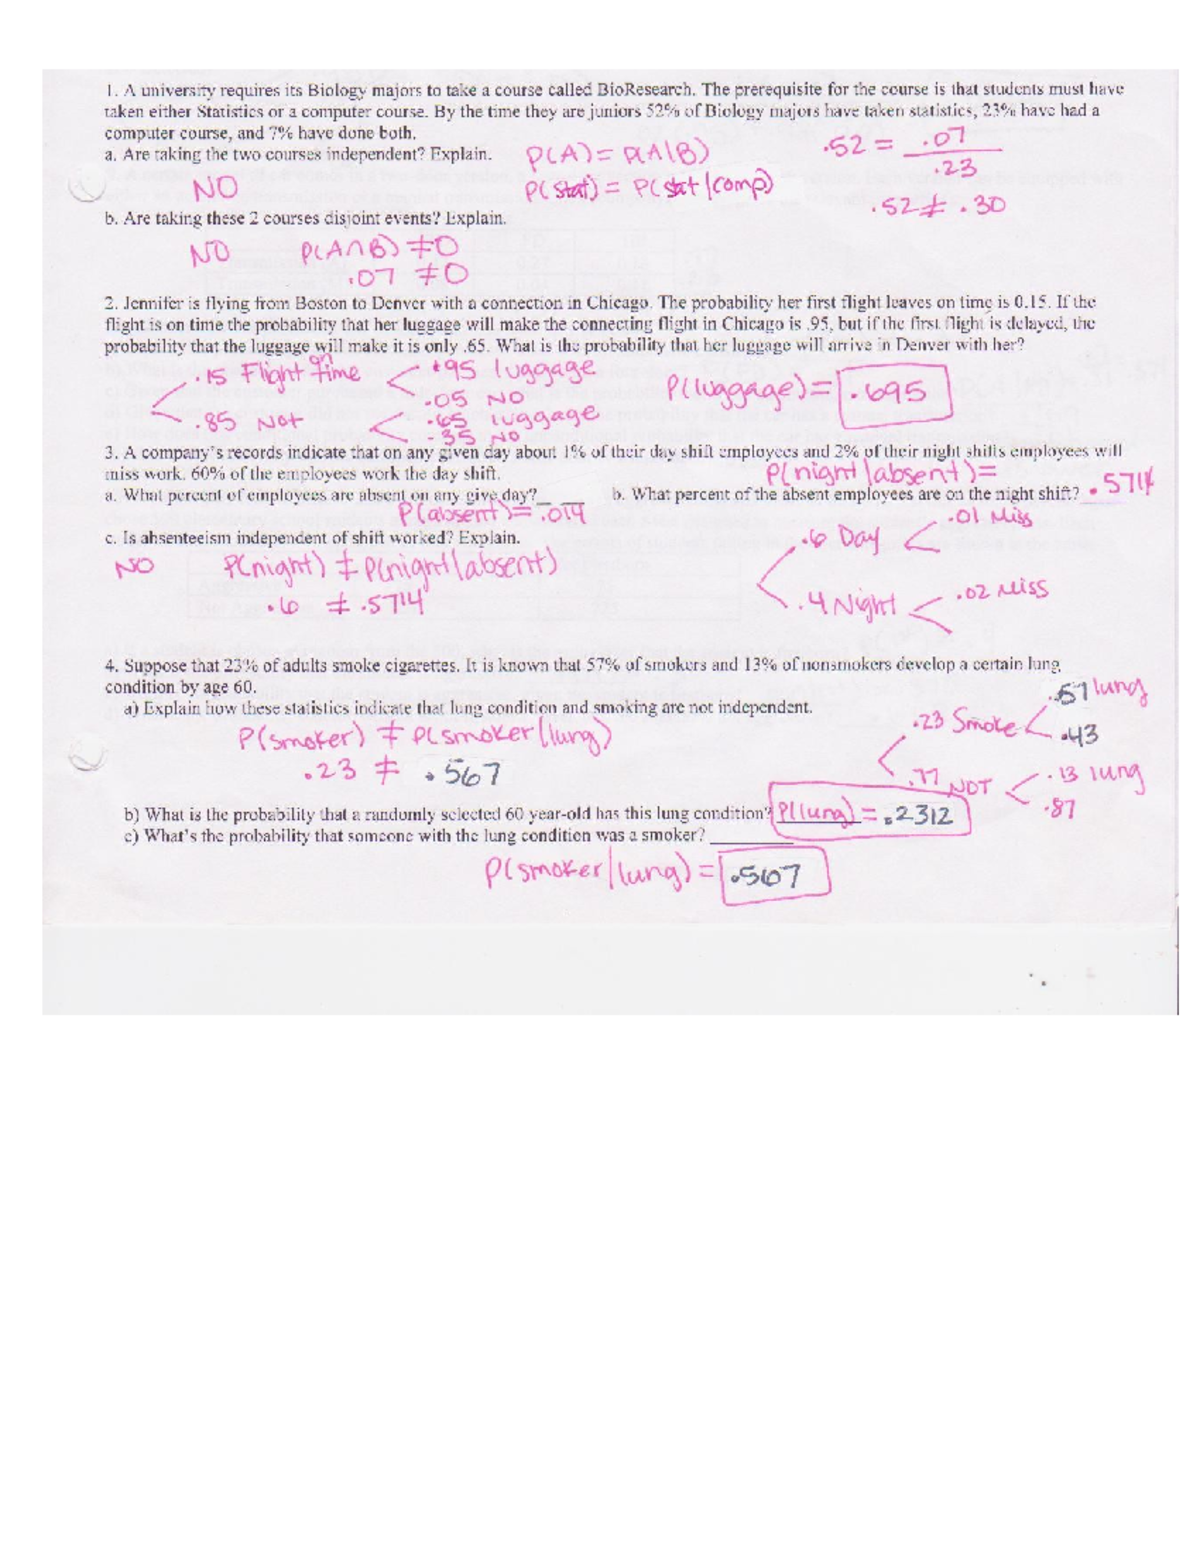 1. A university requires its Biology majors to take a course called BioResearch. The prerequisite for the course is that students must have
taken either Statistics or a computer course. By the time they are juniors 52% of Biology majors have taken statistics, 23% have had a
computer course, and 7% have done both.
a. Are taking the two courses independent? Explain.
P(A) = P(A|B)
.52 = .07
.23
NO
P(stat) = P(stat|comp)
.52 ≠ .30
b. Are taking these 2 courses disjoint events? Explain.
NO P(A∩B) ≠ 0
.07 ≠ 0
2. Jennifer is flying from Boston to Denver with a connection in Chicago. The probability her first flight leaves on time is 0.15. If the
flight is on time the probability that her luggage will make the connecting flight in Chicago is .95, but if the first flight is delayed, the
probability that the luggage will make it is only .65. What is the probability that her luggage will arrive in Denver with her?
.15 Flight on Time
.95 luggage
.05 NO
P(luggage) = .695
.85 Not
.65 luggage
.35 NO
3. A company's records indicate that on any given day about 1% of their day shift employees and 2% of their night shifts employees will
miss work. 60% of the employees work the day shift.
P(night|absent) =
a. What percent of employees are absent on any give day?_ __ b. What percent of the absent employees are on the night shift? .5714
P(absent) = .014
c. Is absenteeism independent of shift worked? Explain.
.6 Day
.01 Miss
NO P(night) ≠ P(night|absent)
.6 ≠ .5714
.4 Night
.02 Miss
4. Suppose that 23% of adults smoke cigarettes. It is known that 57% of smokers and 13% of nonsmokers develop a certain lung
condition by age 60.
.57 lung
a) Explain how these statistics indicate that lung condition and smoking are not independent.
.23 Smoke
.43
P(smoker) ≠ P(smoker|lung)
.23 ≠ .567
.77 NOT
.13 lung
.87
b) What is the probability that a randomly selected 60 year-old has this lung condition? P(lung) = .2312
c) What's the probability that someone with the lung condition was a smoker? ________
P(smoker|lung) = .567